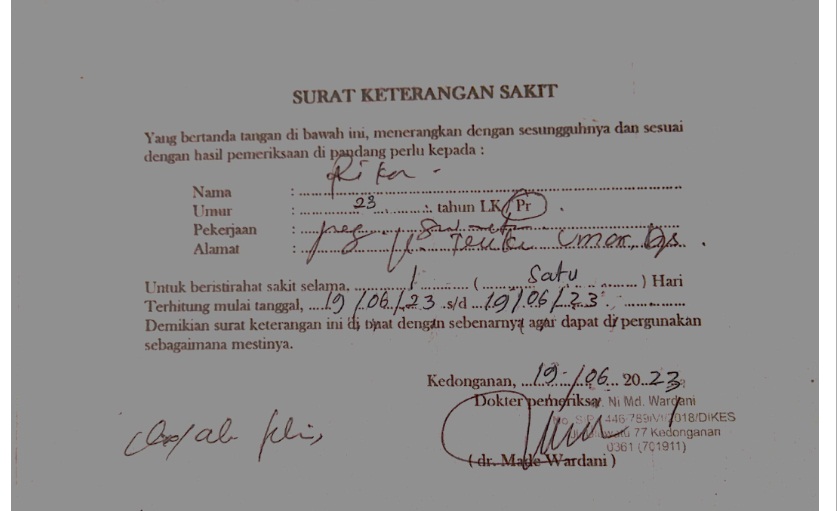 SURAT KETERANGAN SAKIT
Yang bertanda tangan di bawah ini, menerangkan dengan sesungguhnya dan sesuai
dengan hasil pemeriksaan di pandang perlu kepada :
Nama : Rika
Umur : 23 tahun LK/Pr
Pekerjaan : peg.
Alamat : Jl. Teuku Umar, Dps.
Untuk beristirahat sakit selama. 1 ( Satu ) Hari
Terhitung mulai tanggal, 19/06/23 s/d 19/06/23
Demikian surat keterangan ini di buat dengan sebenarnya agar dapat di pergunakan
sebagaimana mestinya.
Kedonganan, 19/06 2023
Dokter pemeriksa
Ni Md. Wardani
446/789/VI/2018/DIKES
77 Kedonganan
0361 (701911)
( dr. Made Wardani )